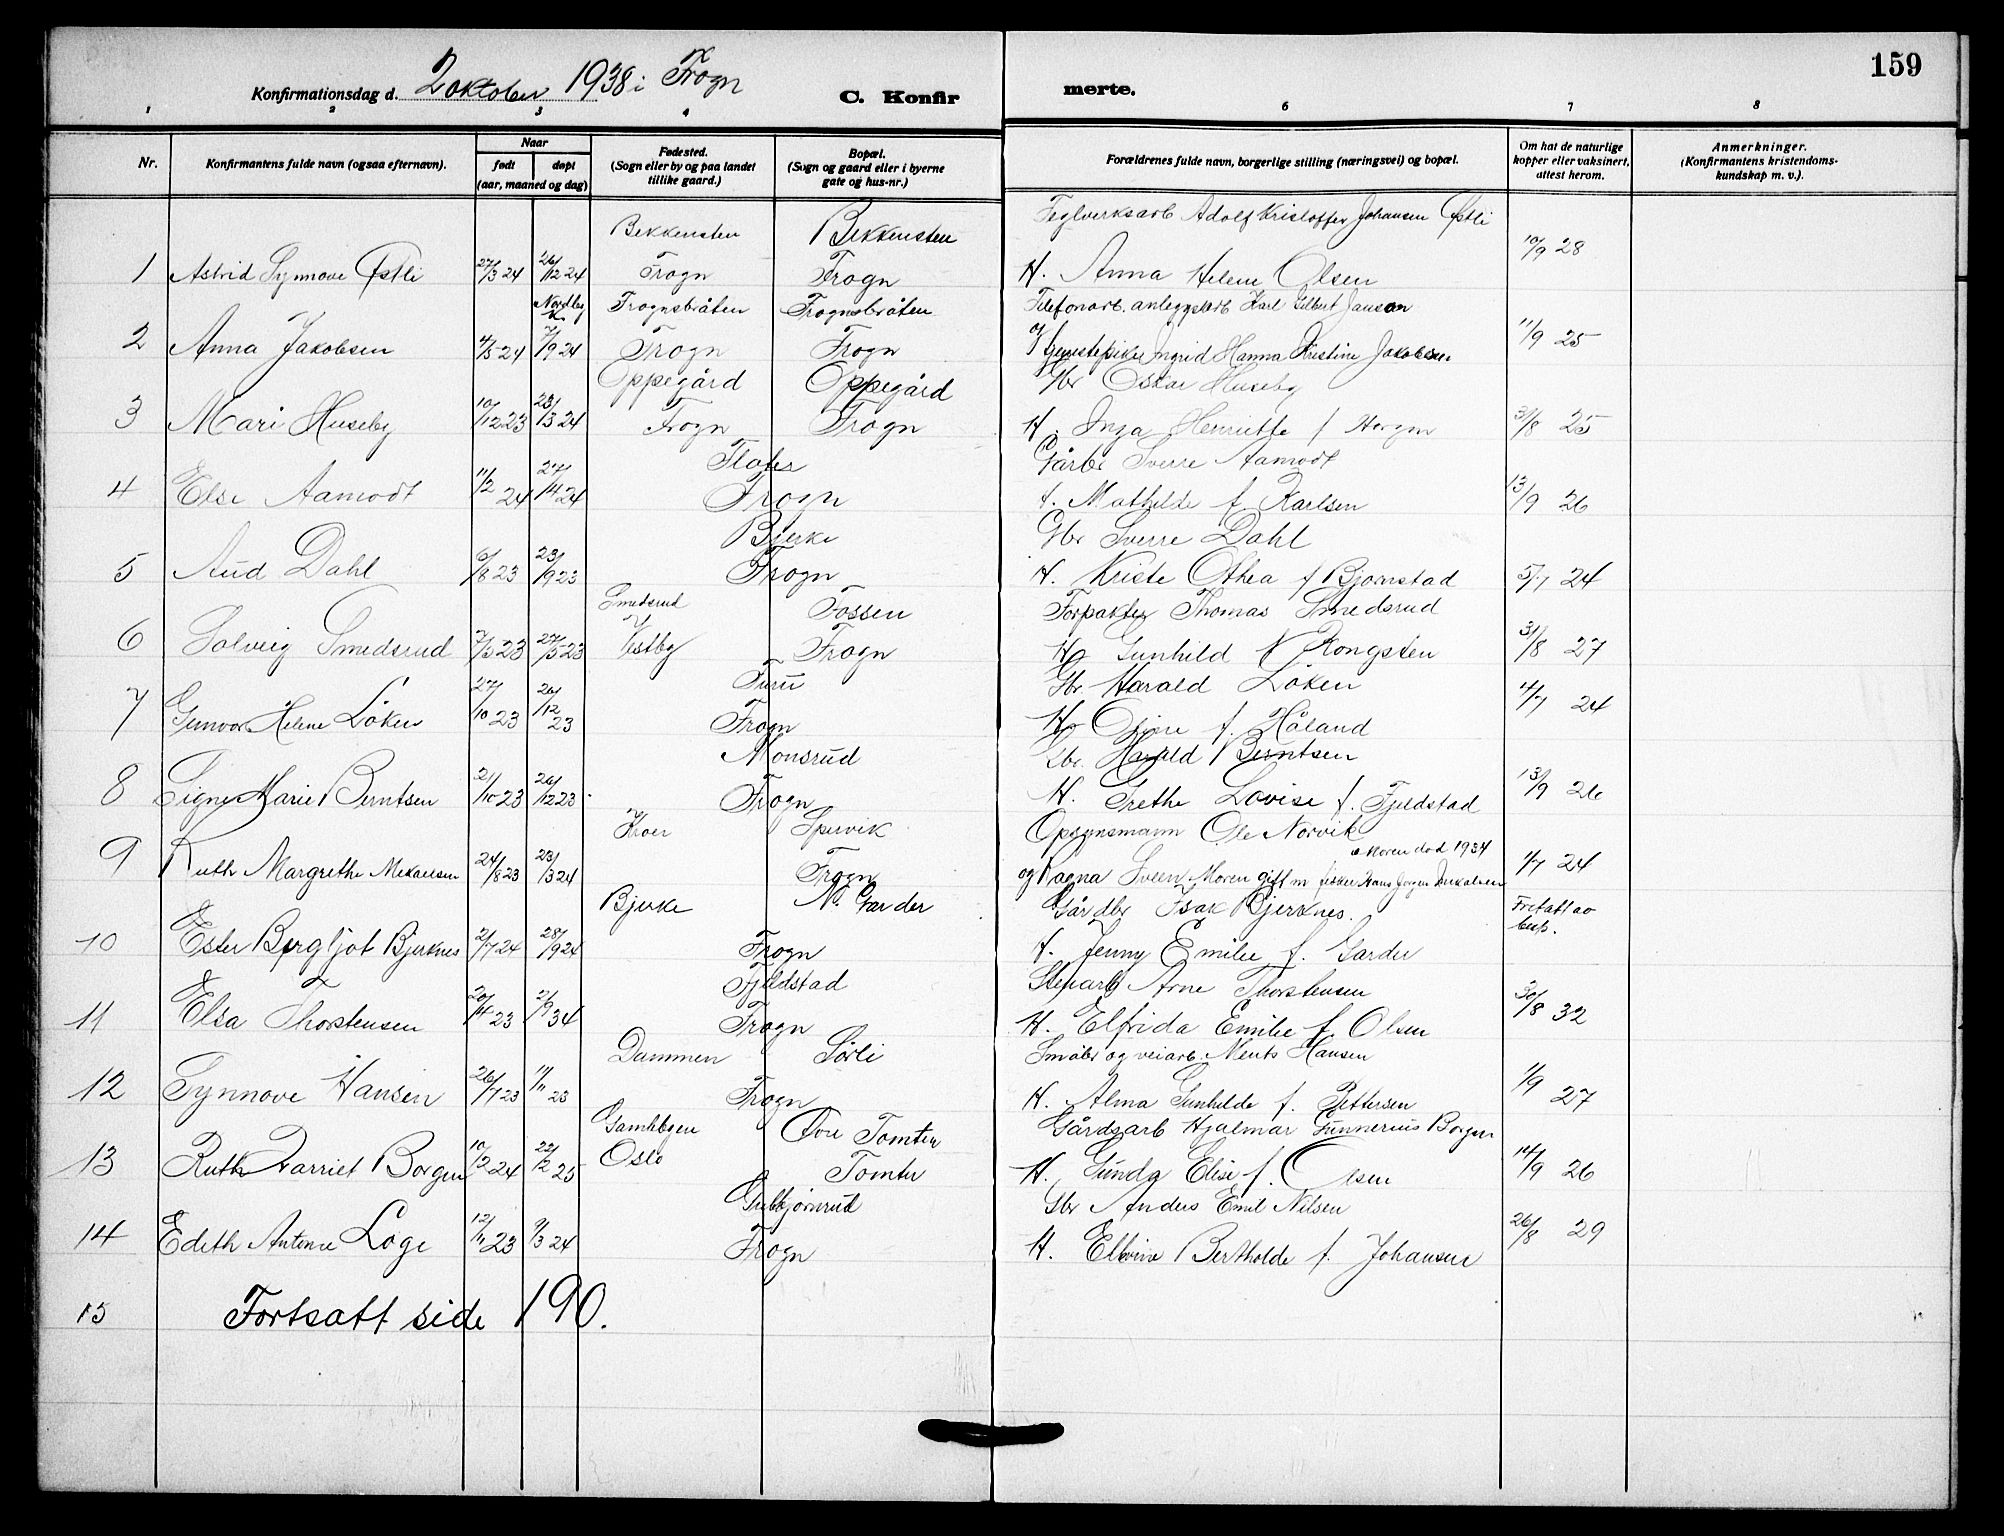 159
Konfirmationsdag d. 2 oktober 1938 i Frogn
C. Konfirmerte.
1 2 3 4 6 7 8
Nr.
Konfirmantens fulde navn (ogsaa efternavn).
Naar
født døpt
(aar, maaned og dag)
Fødested.
(Sogn eller by og paa landet
tillike gaard.)
Bopæl.
(Sogn og gaard eller i byerne
gate og hus-nr.)
Forældrenes fulde navn, borgerlige stilling (næringsvei) og bopæl.
Om hat de naturlige
kopper eller vaksinert,
attest herom.
Anmerkninger.
(Konfirmantens kristendoms-
kundskap m. v.).
Bekkensten Bekkensten Teglverksarb Adolf Kristoffer Johansen Østli
1 Astrid Synnove Østli 27/3 24 26/12 24 Frogn Frogn H. Anna Helene Olsen 10/9 28
Nordby k Frognsbråten Frognsbråten Telefonarb. anleggsarb Karl Gilbert Janson
2 Anna Jakobsen 4/5 24 7/9 24 Frogn Frogn og tjenestepike Ingrid Hanna Kristine Jakobsen 11/9 25
Oppegård Oppegård Gbr Oskar Huseby
3 Mari Huseby 10/12 23 23/3 24 Frogn Frogn H. Inga Henriette f 31/8 25
Floter Gårbr Sverre Aamodt
4 Else Aamodt 11/2 24 27/4 24 Frogn H. Mathilde f Karlsen 13/9 26
Bjerke Gbr Sverre Dahl
5 Aud Dahl 6/8 23 23/9 23 Frogn H. Kriste Othea f Bjørnstad 5/7 24
Smedsrud Fossen Forpakter Thomas Smedsrud
6 Solveig Smedsrud 7/3 23 27/5 23 Vestby Frogn H. Gunhild f Kongsten 31/8 27
Furu Gbr Harald Löken
7 Gunvor Helene Löken 27/10 23 26/12 23 Frogn H. f. Håland 4/7 24
Monsrud Gbr. Harald Berntsen
8 Signe Marie Berntsen 21/10 23 26/12 23 Frogn H. Grethe Lovise f. Fjeldstad 13/9 26
Kroer Spervik Opsynsmann Ole Norvik
Moren død 1934
9 Ruth Margrethe Mikaelsen 24/8 23 23/3 24 Frogn og Ragna Sveen Moren gift m fisker Hans Jørgen Mikalsen 1/7 24
Bjerke N. Garder Gårdbr Isak Bjerknes. Fritatt av
bisp.
10 Ester Bergljot Bjerknes 2/7 24 28/9 24 Frogn H. Jenny Emilie f. Garder
Fjeldstad Stenarb Arne Thorstensen
11 Elsa Thorstensen 20/4 23 2/9 34 Frogn H. Elfrida Emilie f. Olsen 30/8 32
Dammen Sörli Småbr og veiarb. Ments Hansen
12 Synnove Hansen 26/7 23 11/11 23 Frogn H. Alma Gunhilde f. Pettersen 1/9 27
Gamlebyen Øvre Tomter Gårdsarb Hjalmar Gunnerius Borgen
13 Ruth Harriet Borgen 10/12 24 22/2 25 Oslo Tomter H. Gunda Elise f. Olsen 14/9 26
Gulbjørnrud Gbr Anders Emil Nilsen
14 Edith Antonie Loge 12/11 23 9/3 24 Frogn H. Elvine Bertholde f. Johansen 26/8 29
15 Fortsatt side 190.